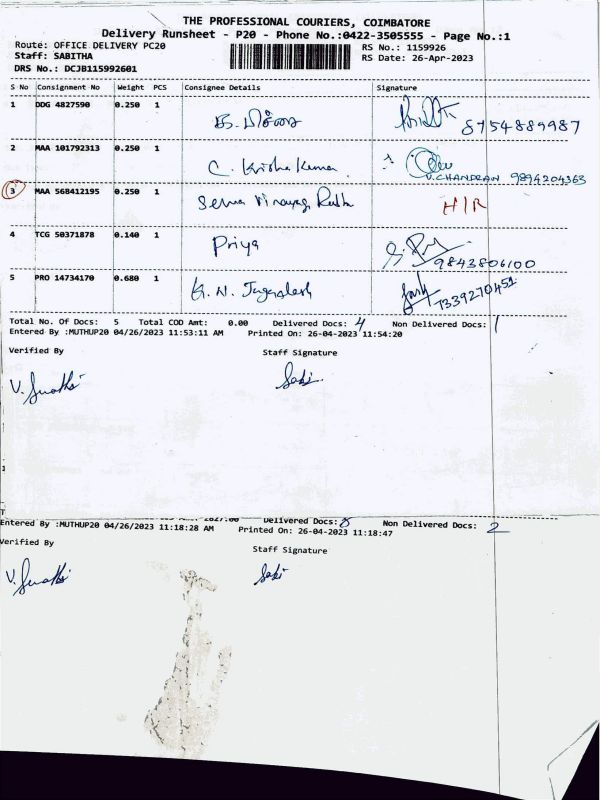 THE PROFESSIONAL COURIERS, COIMBATORE
Delivery Runsheet - P20 - Phone No.:0422-3505555 - Page No.:1
Route: OFFICE DELIVERY PC20 RS No.: 1159926
Staff: SABITHA RS Date: 26-Apr-2023
DRS No.: DCJB115992601
S No Consignment No Weight PCS Consignee Details Signature
1 DDG 4827590 0.250 1
8754889987
2 MAA 101792313 0.250 1
C. Krishna Kumar
V.CHANDRAN 9894204363
3 MAA 568412195 0.250 1
H/R
4 TCG 50371878 0.140 1
Priya
9843806100
5 PRO 14734170 0.680 1
K. N. Jagadesh 7339270451
Total No. Of Docs: 5 Total COD Amt: 0.00 Delivered Docs: 4 Non Delivered Docs: 1
Entered By :MUTHUP20 04/26/2023 11:53:11 AM Printed On: 26-04-2023 11:54:20
Verified By Staff Signature
Delivered Docs: 8 Non Delivered Docs: 2
Entered By :MUTHUP20 04/26/2023 11:18:28 AM Printed On: 26-04-2023 11:18:47
Verified By Staff Signature